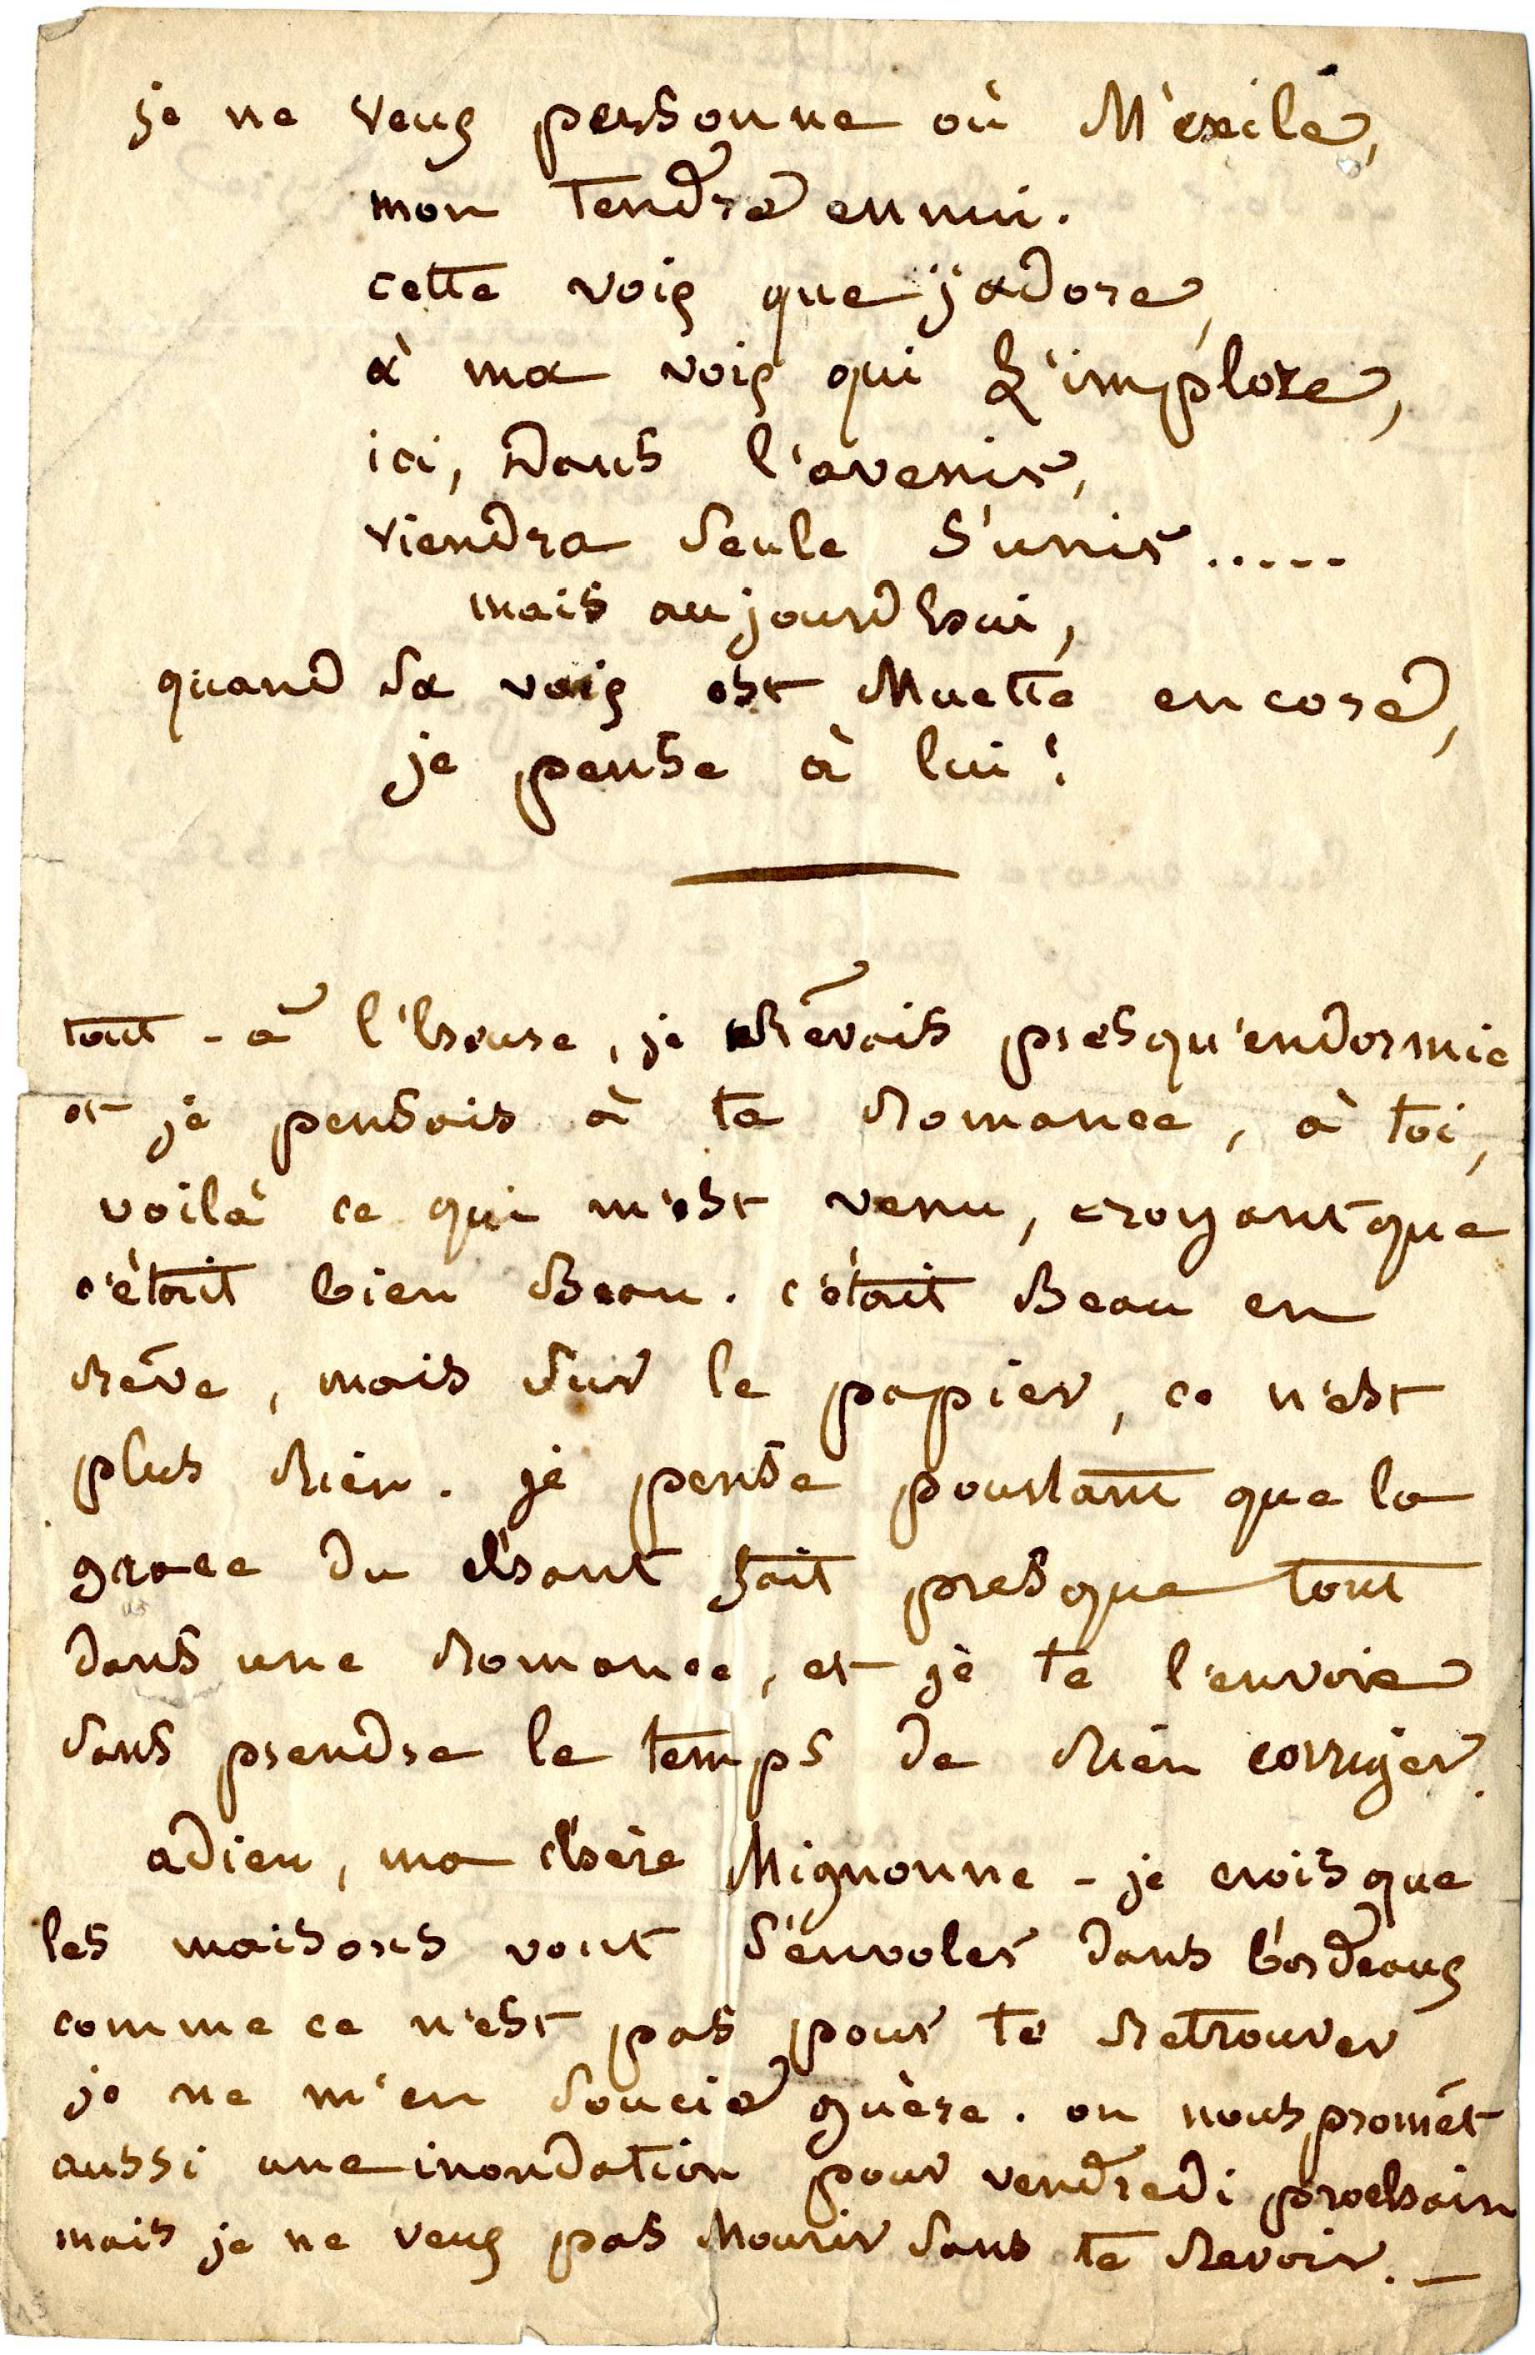 je ne veux personne où M'exile,
mon tendre ennui.
cette voix que j'adore,
à ma voix qui L'implore,
ici, dans l'avenir,
viendra seule s'unir.....
mais aujourdhui,
quand sa voix est Muette encore,
je pense à lui !
tout-à l'heure, je Rêvais presqu'endormie
et je pensais à ta Romance, à toi,
voilà ce qui m'est venu, croyant que
c'était bien Beau. c'était Beau en
Rêve, mais sur le papier, ce n'est
plus Rien. je pense pourtant que la
grace du chant fait presque tout
dans une Romance, et je te l'envoie
sans prendre le temps de Rien corriger.
adieu, ma chère Mignonne - je crois que
les maisons vont s'envoler dans bordeaux
comme ce n'est pas pour te Retrouver
je ne m'en soucie guère. on nous promêt
aussi une inondation pour vendredi prochain
mais je ne veux pas Mourir sans te Revoir. —